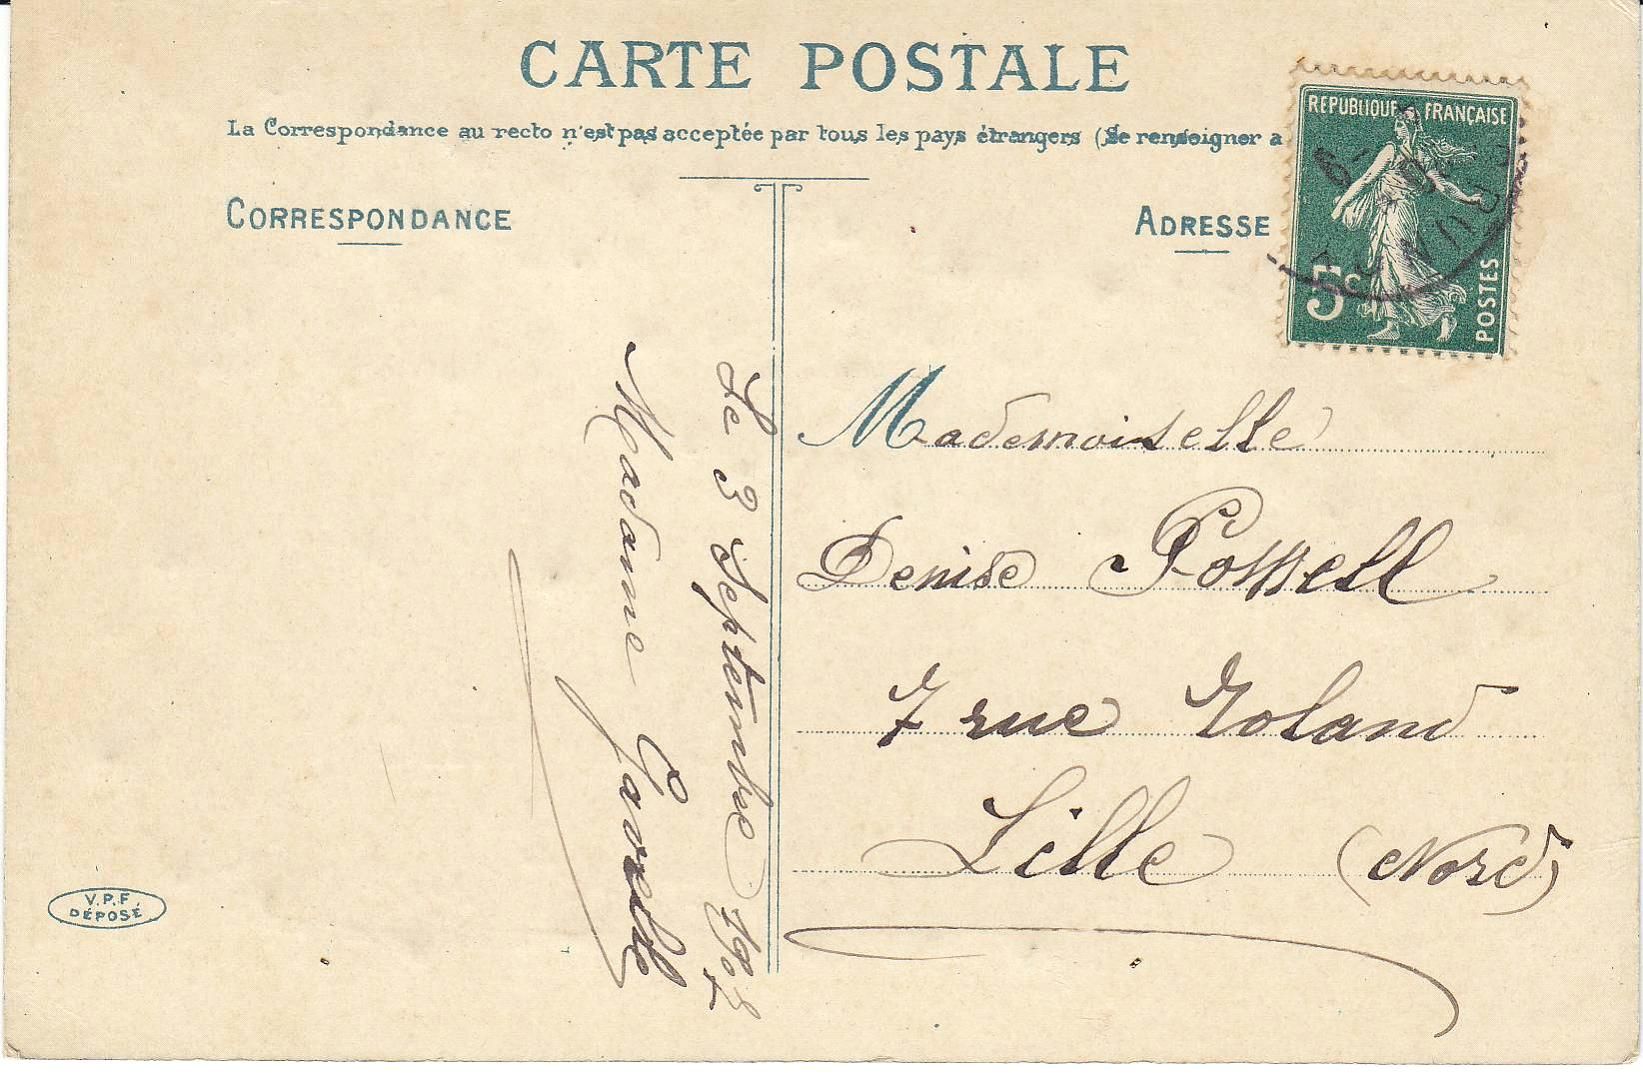 CARTE POSTALE
La Correspondance au recto n'est pas acceptée par tous les pays étrangers (Se renseigner a
CORRESPONDANCE
ADRESSE
REPUBLIQUE FRANÇAISE
5c
POSTES
Mademoiselle
Denise
7 rue Roland
Lille (Nord)
Le 3 Septembre
Madame Gavrelle
V.P.F.
DÉPOSÉ